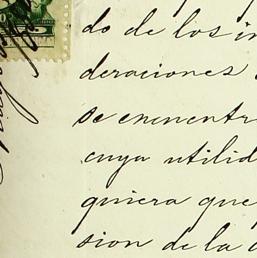 do de los in
deraciones
se encuentr
cuya utilid
quiera que
sion de la